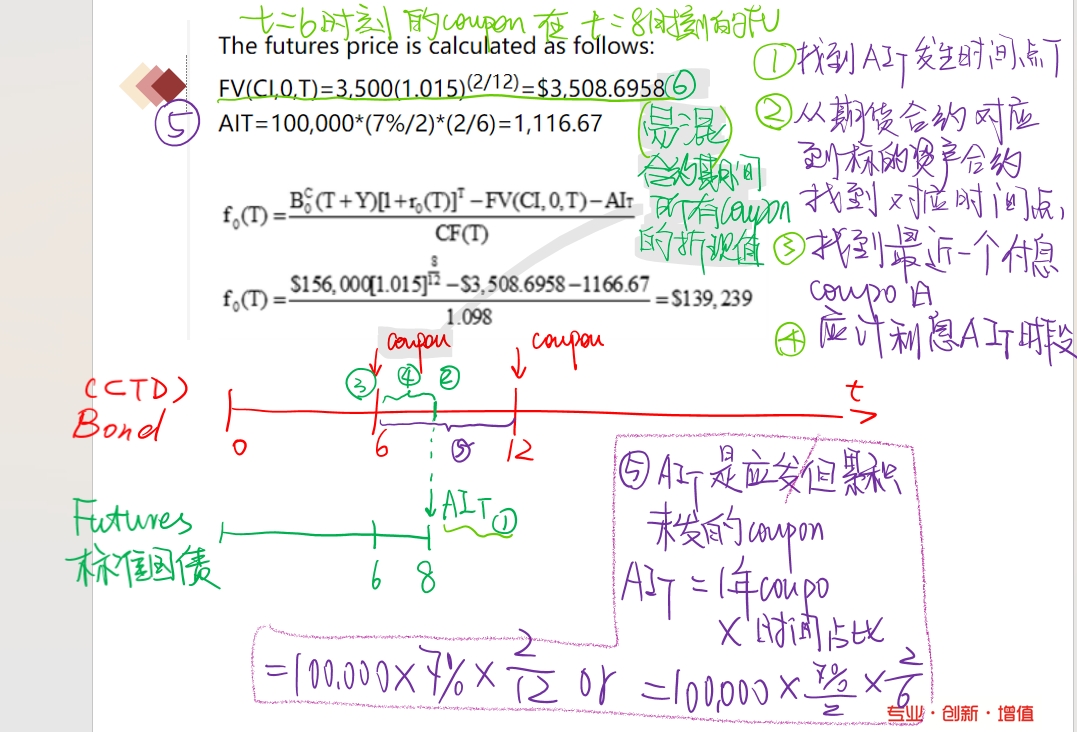 t=6时刻的coupon在t=8时刻的
The futures price is calculated as follows:
FV(CI,0,T)=3,500(1.015)^(2/12)=$3,508.6958 ⑥
⑤ AIT=100,000*(7%/2)*(2/6)=1,116.67
易混
合约期间
所有coupon
的折现值
f₀(T) = (B₀ᶜ(T+Y)[1+r₀(T)]ᵀ − FV(CI,0,T) − AIT) / CF(T)
f₀(T) = ($156,000[1.015]^(8/12) − $3,508.6958 − 1166.67) / 1.098 = $139,239
① 找到AIT发生时间点T
② 从期货合约对应
到标的资产合约
找到对应时间点,
③ 找到最近一个付息
coupo日
④ 应计利息AIT时段
coupon coupon
③ ④ ②
(CTD)
Bond
t
0 6 ⑤ 12
AIT ①
Futures
标准国债
6 8
⑤ AIT是应发但累积
未发的coupon
AIT = 1年coupo
× 时间占比
= 100,000 × 7% × 2/12 or = 100,000 × 7%/2 × 2/6
专业·创新·增值